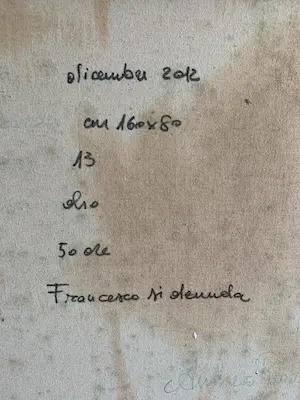 dicember 2012
cm 160x80
13
olio
50 ore
Francesco si denuda